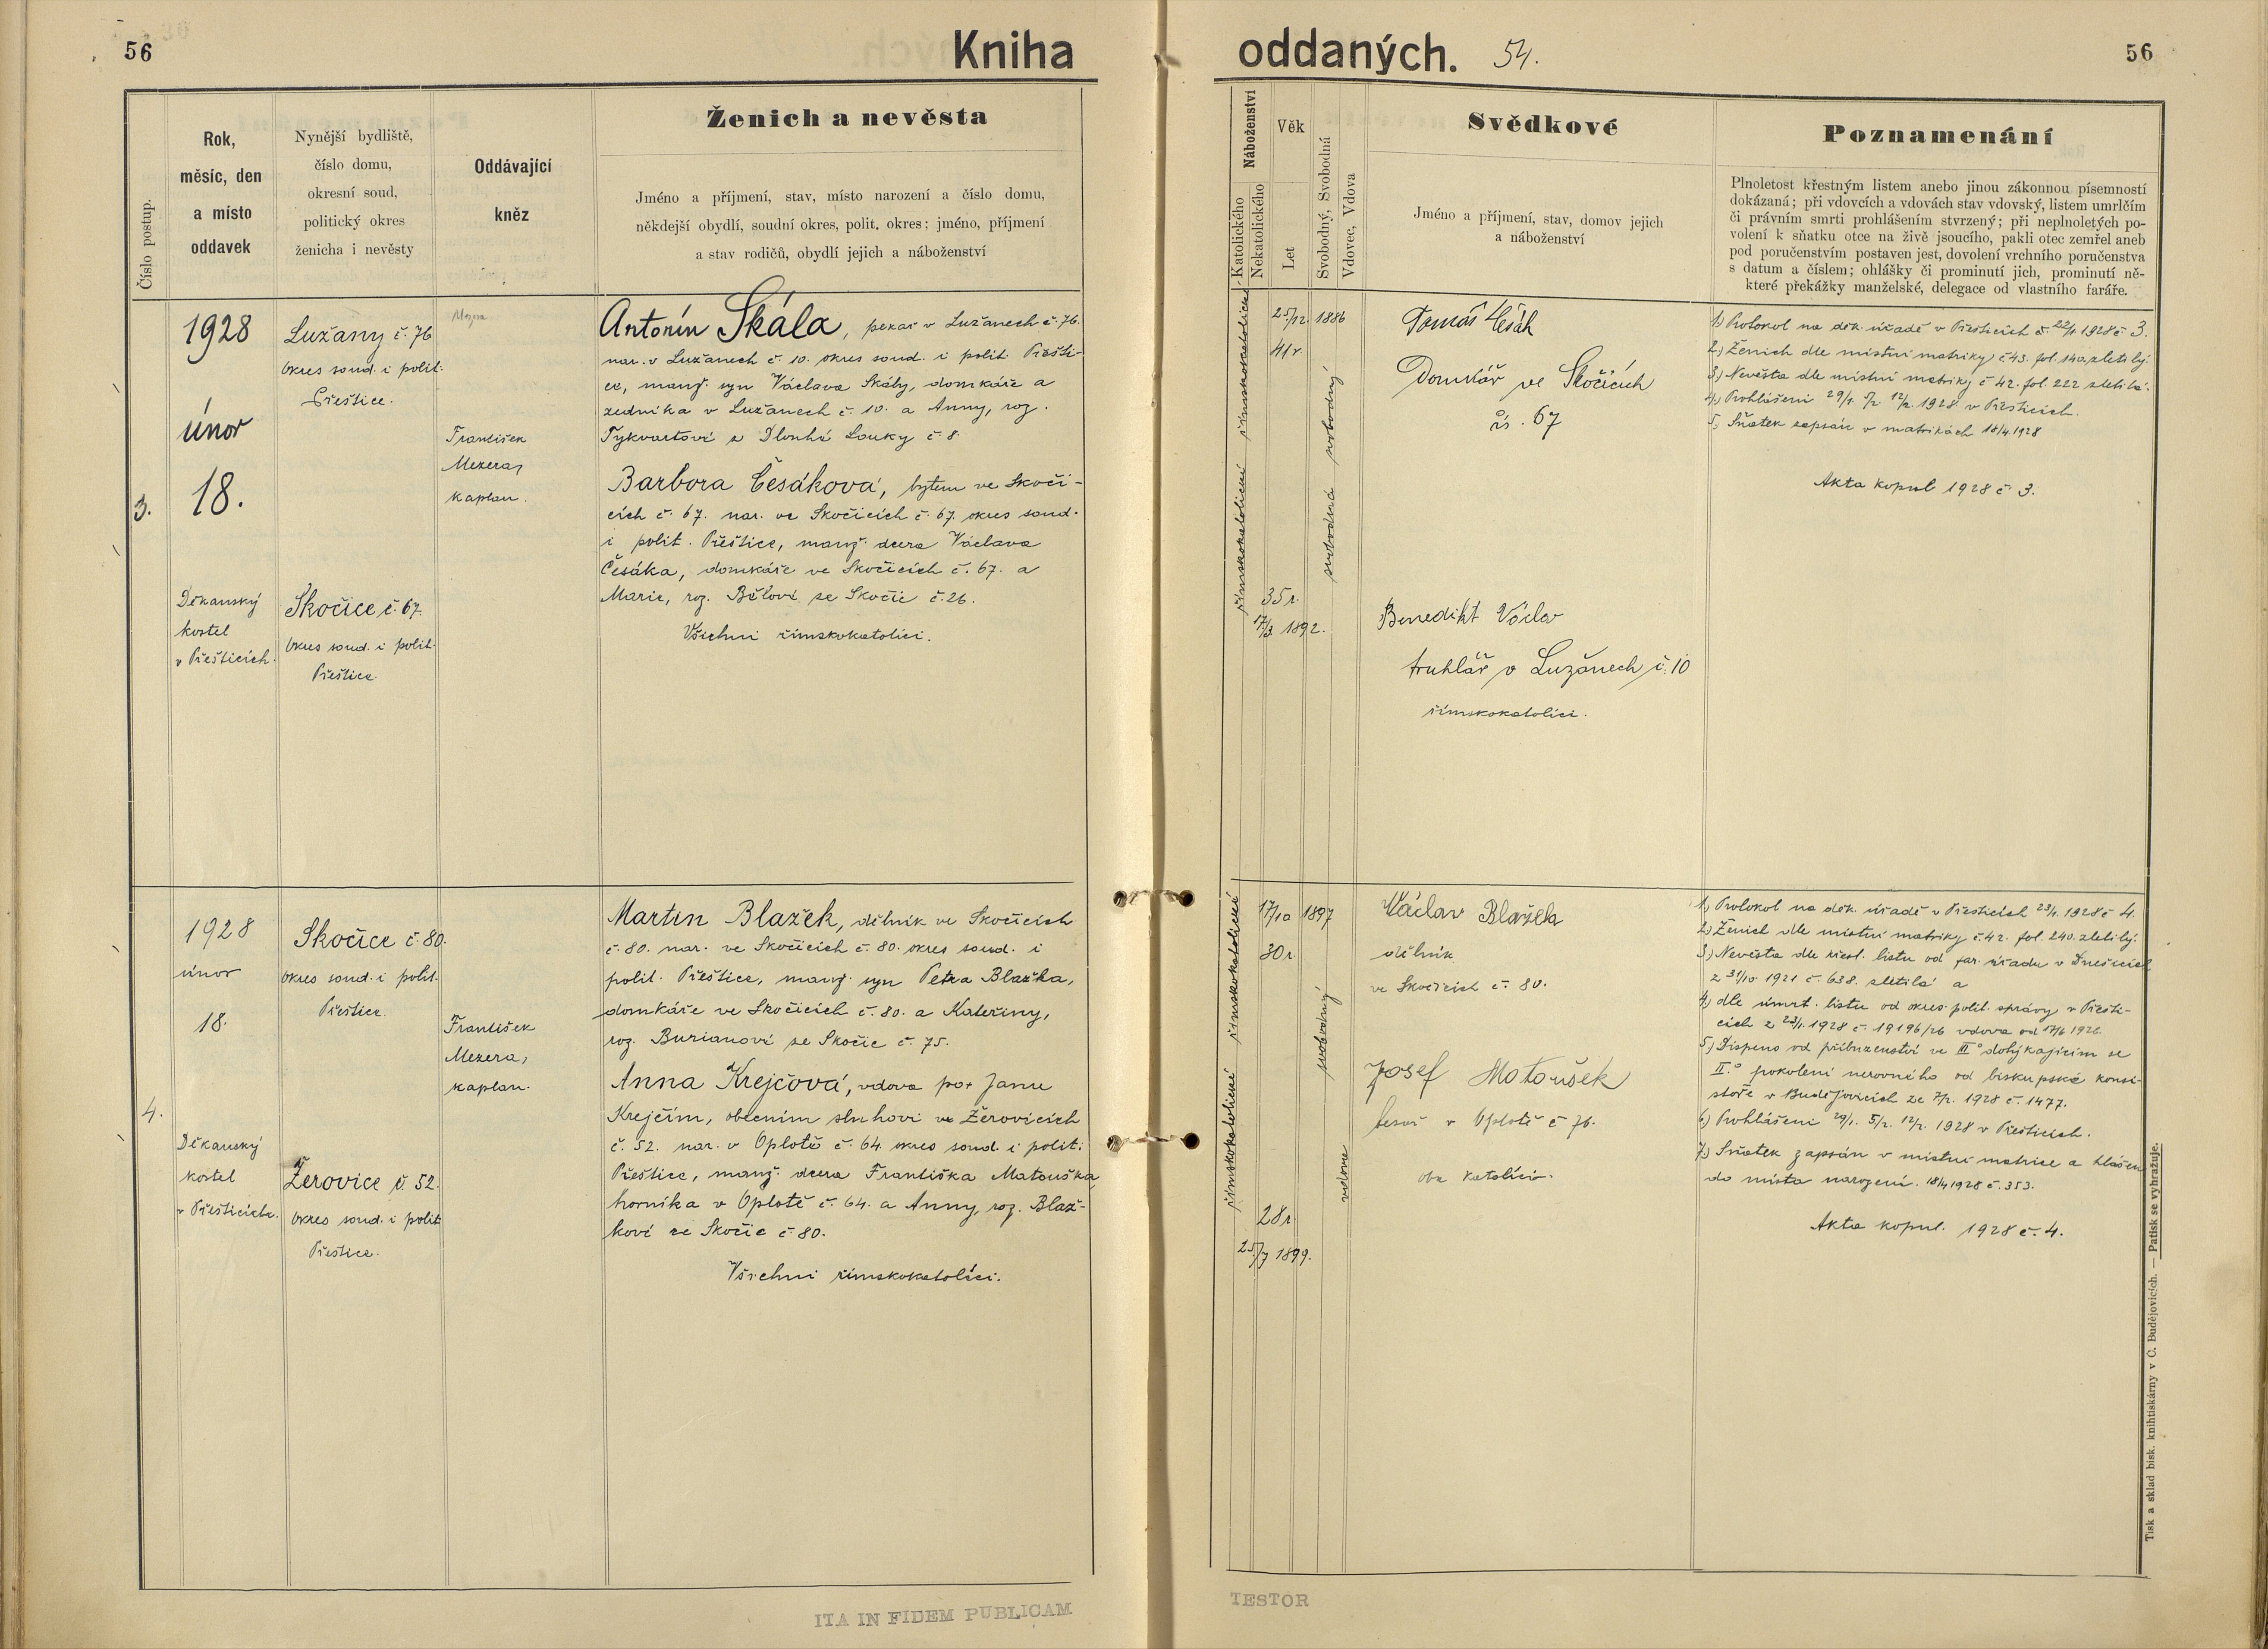 56
Kniha
Číslo postup.
Rok,
měsíc, den
a místo
oddavek
Nynější bydliště,
číslo domu,
okresní soud,
politický okres
ženicha i nevěsty
Oddávající
kněz
Ženich a nevěsta
Jméno a příjmení, stav, místo narození a číslo domu,
někdejší obydlí, soudní okres, polit. okres; jméno, příjmení
a stav rodičů, obydlí jejich a náboženství
3.
1928
únor
18.
Děkanský
kostel
v Přešticích.
Lužany č. 76
Okres soud. i polit.
Přeštice.
Skočice č. 67.
Okres soud. i polit.
Přeštice.
František
Mezera,
kaplan.
Antonín Skála, pekař v Lužanech č. 76.
nar. v Lužanech č. 10. okres soud. i polit. Přešti-
ce, manž. syn Václava Skály, domkáře a
zedníka v Lužanech č. 10. a Anny, roz.
Tykvartové z Dlouhé Louky č. 8.
Barbora Česáková, bytem ve Skoči-
cích č. 67. nar. ve Skočicích č. 67. okres soud.
i polit. Přeštice, manž. dcera Václava
Česáka, domkáře ve Skočicích č. 67. a
Marie, roz. Bělové ze Skočic č. 26.
Všichni římskokatolíci.
4.
1928
únor
18.
Děkanský
kostel
v Přešticích.
Skočice č. 80.
okres soud. i polit.
Přeštice.
Žerovice č. 52.
okres soud. i polit
Přeštice.
František
Mezera,
kaplan.
Martin Blažek, dělník ve Skočicích
č. 80. nar. ve Skočicích č. 80. okres soud. i
polit. Přeštice, manž. syn Petra Blažka,
domkáře ve Skočicích č. 80. a Kateřiny,
roz. Burianové ze Skočic č. 75.
Anna Krejčová, vdova po + Janu
Krejčím, obecním sluhovi ve Žerovicích
č. 52. nar. v Oplotě č. 64. okres soud. i polit.
Přeštice, manž. dcera Františka Matouška
horníka v Oplotě č. 64. a Anny, roz. Blaž-
kové ze Skočic č. 80.
Všichni římskokatolíci.
ITA IN FIDEM PUBLICAM
oddaných. 54.
56
Náboženství
Katolického
Nekatolického
Věk
Let
Svobodný, Svobodná
Vdovec, Vdova
Svědkové
Jméno a příjmení, stav, domov jejich
a náboženství
Poznamenání
Plnoletost křestným listem anebo jinou zákonnou písemností
dokázaná; při vdovcích a vdovách stav vdovský, listem umrlčím
či právním smrti prohlášením stvrzený; při neplnoletých po-
volení k sňatku otce na živě jsoucího, pakli otec zemřel aneb
pod poručenstvím postaven jest, dovolení vrchního poručenstva
s datum a číslem; ohlášky či prominutí jich, prominutí ně-
které překážky manželské, delegace od vlastního faráře.
římskokatolické římskokatolické
25/12. 1886
41 r.
35 r.
17/3. 1892.
svobodná svobodný
Tomáš Česák
Domkář ve Skočicích
čís. 67
Benedikt Václav
truhlář v Lužanech č. 10
římskokatolíci.
1.) Protokol na děk. úřadě v Přešticích č. 22/1. 1928 č. 3.
2.) Ženich dle místní matriky č. 43. fol. 140. zletilý.
3.) Nevěsta dle místní matriky č. 42. fol. 222 zletilá.
4.) Prohlášeni 29/1. 5/2. 12/2. 1928 v Přešticích.
5.) Sňatek zapsán v matrikách 18/4. 1928
Akta kopul 1928 č. 3.
římskokatolické římskokatolické
17/10 1897
30 r.
28 r.
25/7 1899.
svobodný
vdova
Václav Blažek
dělník
ve Skočicích č. 80.
Josef Matoušek
v Oplotě č. 76.
oba katolíci.
1.) Protokol na děk. úřadě v Přešticích 23/1. 1928 č. 4.
2.) Ženich dle místní matriky č. 42. fol. 240. zletilý.
3.) Nevěsta dle křest. listu od far. úřadu v Dnešicích
z 31/10. 1921 č. 638. zletilá a
4.) dle úmrt. listu od okres. polit. správy v Přešti-
cích z 23/1. 1928 č. 19196/26 vdova od 17/6 1926.
5.) Dispens od příbuzenství ve III° dotýkajícím se
II.° pokolení nerovného od biskupské konsi-
stoře v Budějovicích ze 7/2. 1928 č. 1477.
6.) Prohlášeni 29/1. 5/2. 12/2. 1928 v Přešticích.
7.) Sňatek zapsán v místní matrice a hlášen
do místa narození. 18/4 1928 č. 353.
Akta kopul. 1928 č. 4.
Tisk a sklad bisk. knihtiskárny v Č. Budějovicích. — Patisk se vyhražuje.
TESTOR